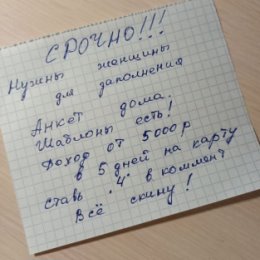 СРОЧНО!!!
Нужны женщины
для заполнения
Анкет дома.
Шаблоны есть!
Доход от 5000р
в 5 дней на карту
ставь "4" в коммент
Всё скину!